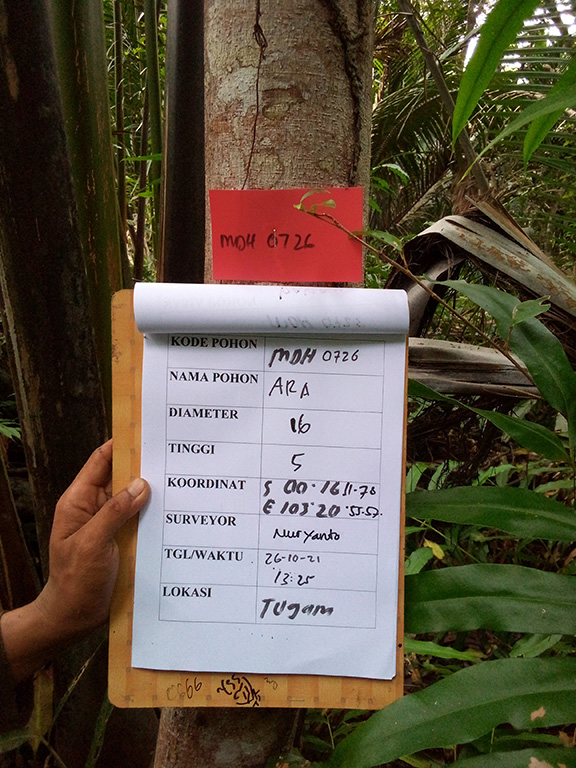 MDH 0726
KODE POHON MDH 0726
NAMA POHON ARA
DIAMETER 16
TINGGI 5
KOORDINAT S 00.16
E 103.20
SURVEYOR Nuryanto
TGL/WAKTU 26-10-21
13:25
LOKASI TUgam